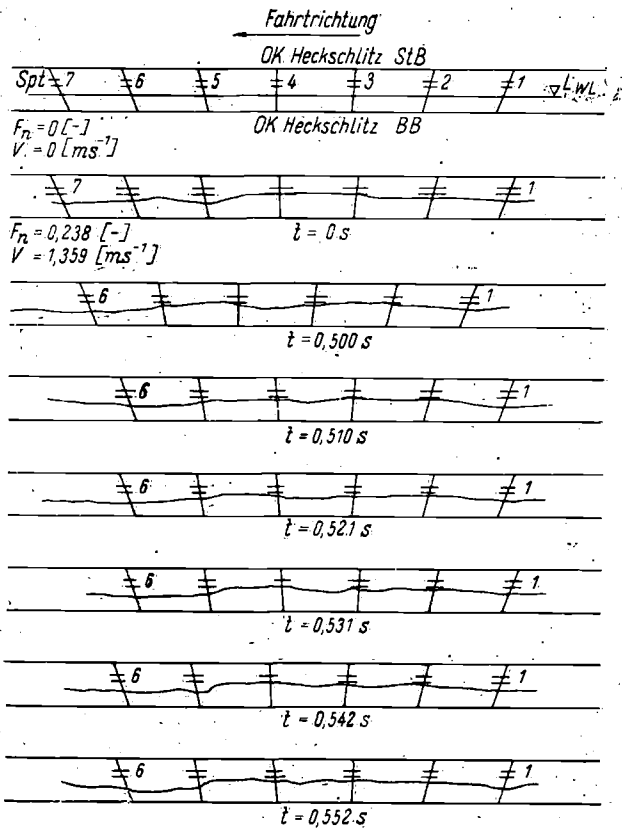 Fahrtrichtung
OK Heckschlitz StB
Spt 7 6 5 4 3 2 1 LWL
F_n = 0 [-]
V = 0 [ms⁻¹]
OK Heckschlitz BB
7 1
F_n = 0,238 [-]
V = 1,359 [ms⁻¹]
t = 0 s
6 1
t = 0,500 s
6 1
t = 0,510 s
6 1
t = 0,521 s
6 1
t = 0,531 s
6 1
t = 0,542 s
6 1
t = 0,552 s